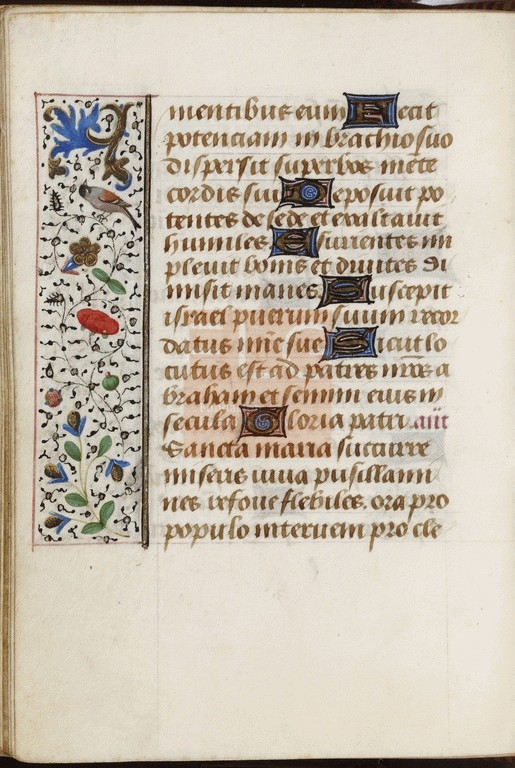 mentibus eum Fecit
potenciam in brachio suo
dispersit superbos mēte
cordis sui Deposuit po
tentes de sede et exaltauit
humiles Esurientes im
pleuit bonis et diuites di
misit inanes Suscepit
israel puerum suum recor
datus mīe sue Sicut lo
cutus est ad patres nr̄os a
braham et semini eius in
secula Gloria patri. aūt
Sancta maria succurre
miseris iuua pusillani
mes refoue flebiles. ora pro
populo interueni pro cle